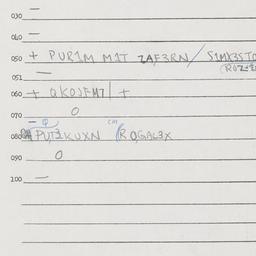 030 —
040 —
050 + PUR1M M1T ZAF3RN / S1MX3STO
(ROZ
051 —
060 + QKOJFM7 | +
070 O
080 PUT1KUXN (ROGAL3X
090 O
100 —